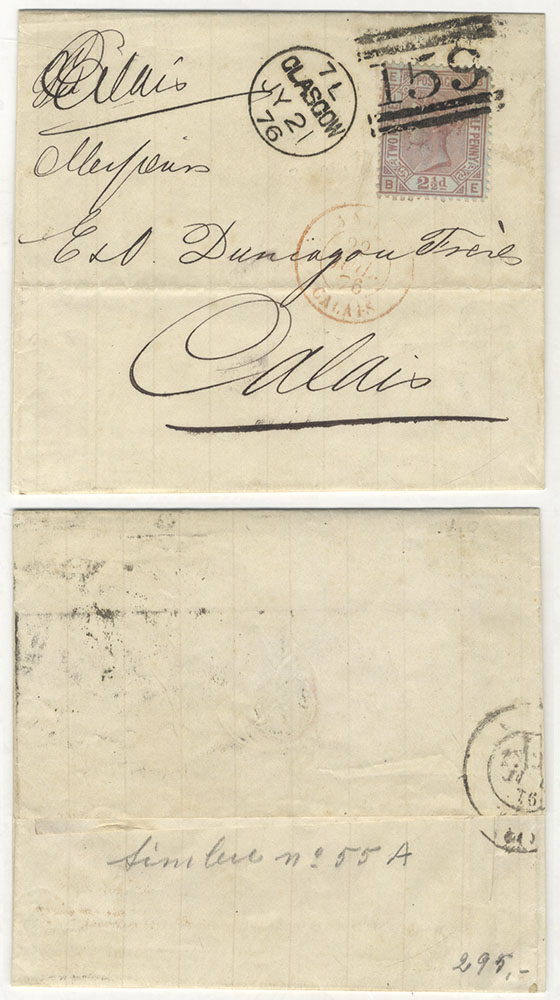 Calais
7 L
GLASGOW
JY 21
76
159
POSTAGE
HALF PENNY
TWO
2½d
B E
Messieurs
E & O. Duniagou Frères
CALAIS
76
Calais
timbre nº 55 A
76
295,-